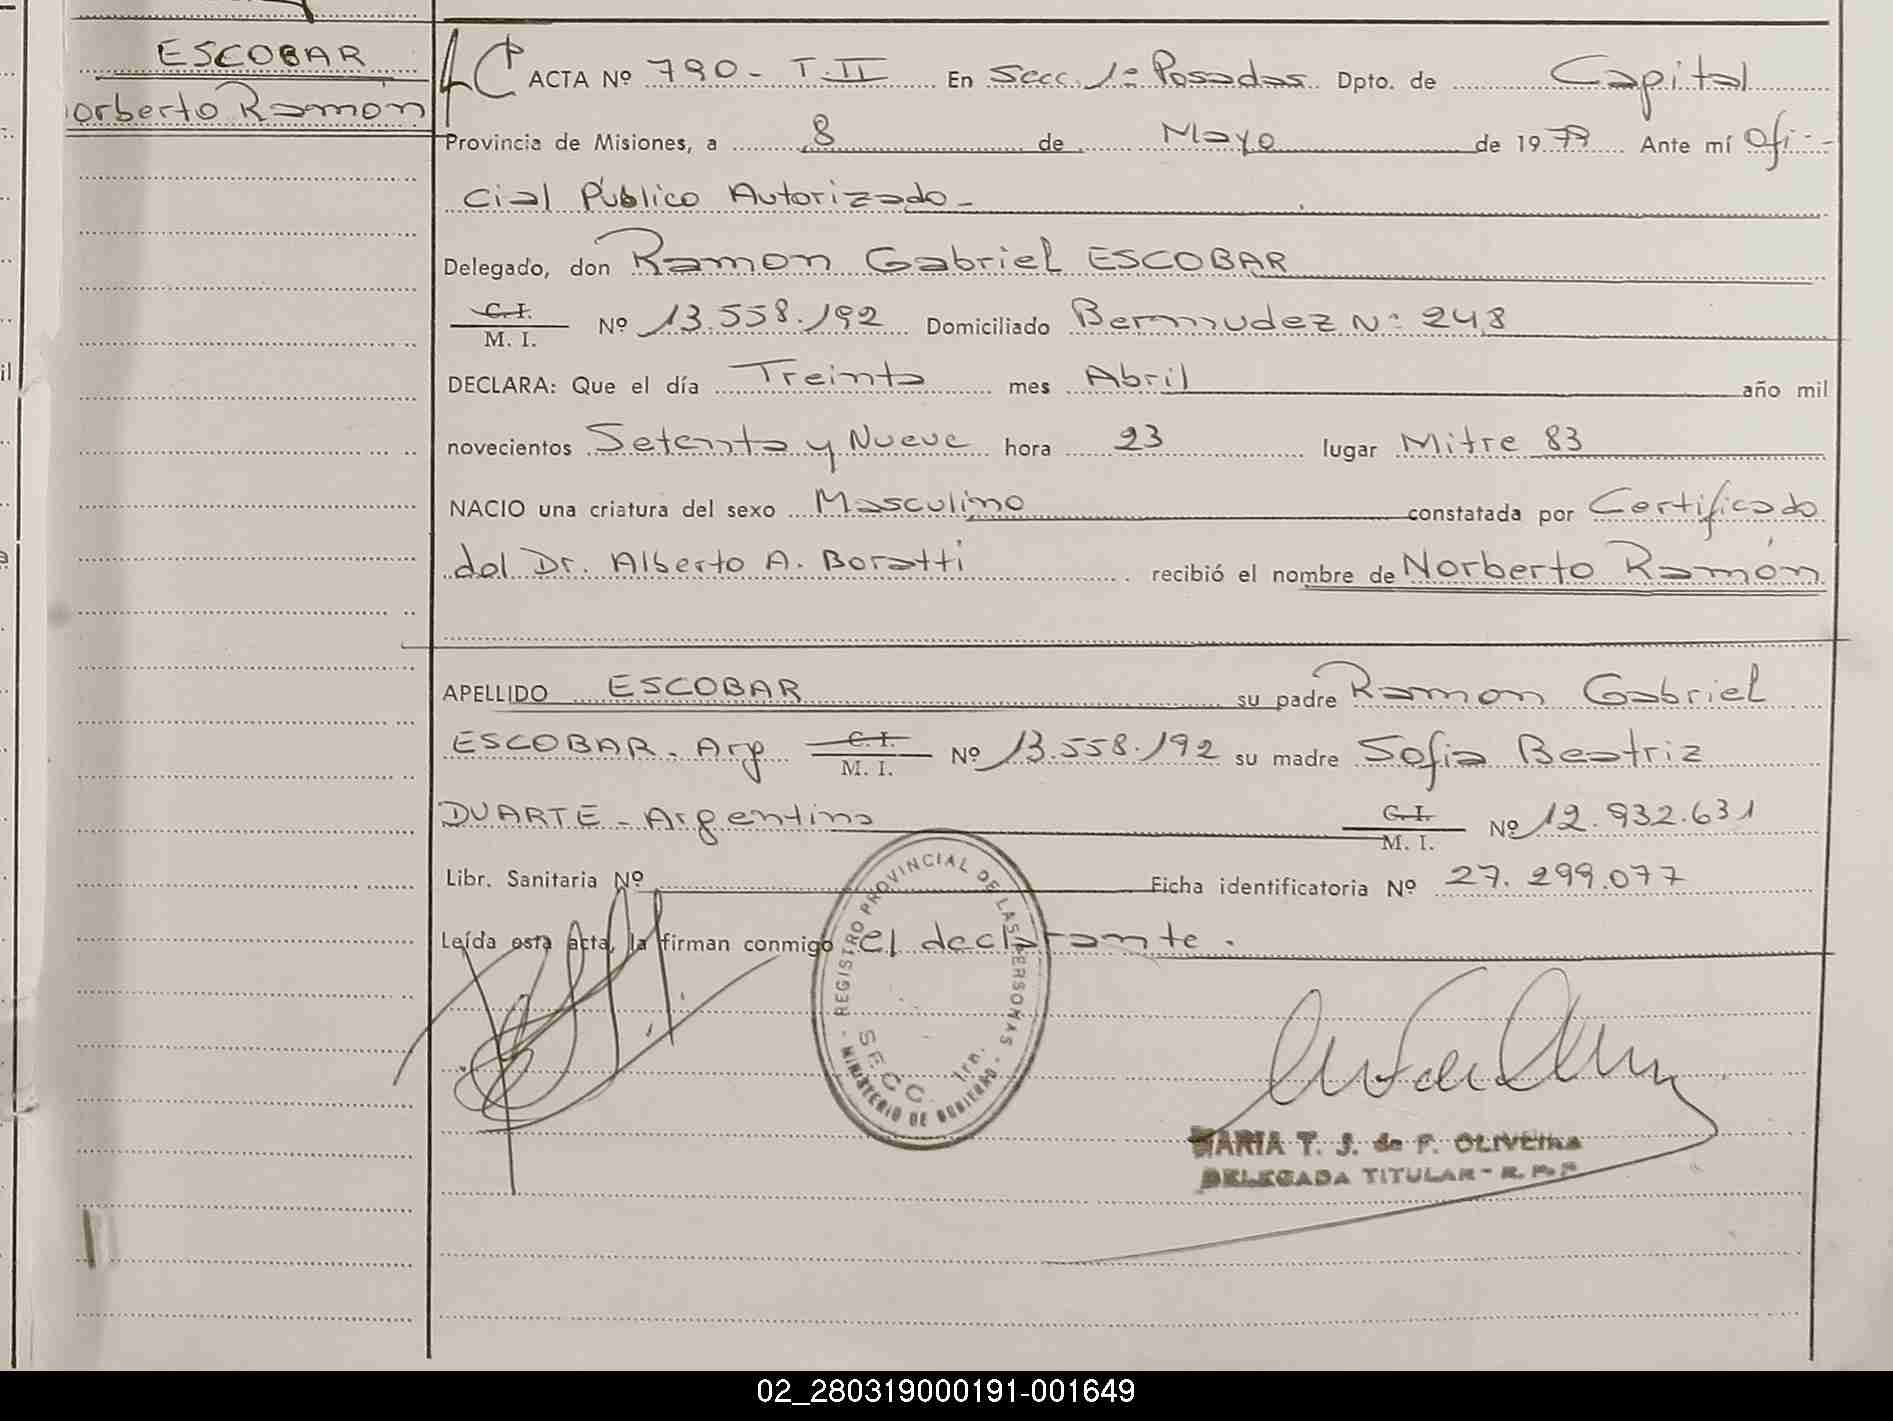 ESCOBAR
Norberto Ramón
ACTA Nº 790 - T. II En Secc. 1º Posadas Dpto. de Capital
Provincia de Misiones, a 8 de Mayo de 1979 Ante mí Ofi-
cial Público Autorizado -
Delegado, don Ramon Gabriel ESCOBAR
C. I.
M. I. Nº 13.558.192 Domiciliado Bermudez Nº 248
DECLARA: Que el día Treinta mes Abril año mil
novecientos Setenta y Nueve hora 23 lugar Mitre 83
NACIO una criatura del sexo Masculino constatada por Certificado
del Dr. Alberto A. Boratti recibió el nombre de Norberto Ramón
APELLIDO ESCOBAR su padre Ramon Gabriel
ESCOBAR - Arg C. I. M. I. Nº 13.558.192 su madre Sofia Beatriz
DUARTE - Argentina C. I. M. I. Nº 12.932.631
Libr. Sanitaria Nº Ficha identificatoria Nº 27.299.077
Leída esta acta, la firman conmigo el declarante.
REGISTRO PROVINCIAL DE LAS PERSONAS - MINISTERIO DE GOBIERNO -
SECC. 1ra.
MARIA T. J. de F. OLIVEIRA
DELEGADA TITULAR - R. P. P.
02_280319000191-001649